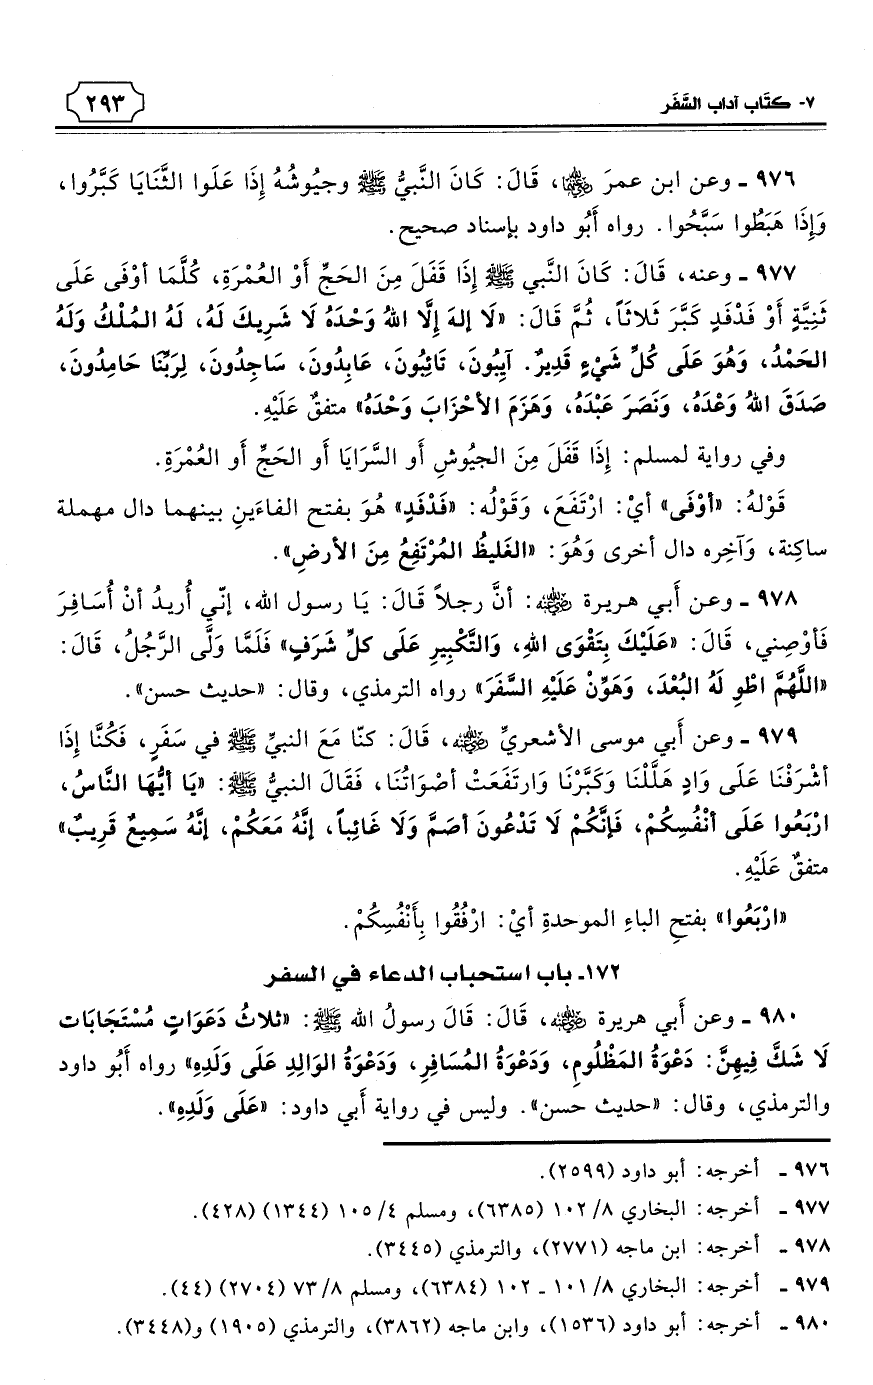 ٧- كتَاب آداب السَّفَر
٢٩٣
٩٧٦ ـ وعن ابن عمرَ رضي الله عنهما، قَالَ: كَانَ النَّبيُّ ﷺ وجيُوشُهُ إِذَا عَلَوا الثَّنَايَا كَبَّرُوا،
وَإِذَا هَبَطُوا سَبَّحُوا. رواه أَبُو داود بإسناد صحيح.
٩٧٧ ـ وعنه، قَالَ: كَانَ النَّبي ﷺ إِذَا قَفَلَ مِنَ الحَجِّ أَوْ العُمْرَةِ، كُلَّمَا أوْفَى عَلَى
ثَنِيَّةٍ أَوْ فَدْفَدٍ كَبَّرَ ثَلاثَاً، ثُمَّ قَالَ: «لَا إلهَ إِلَّا اللهُ وَحْدَهُ لَا شَرِيكَ لَهُ، لَهُ المُلْكُ وَلَهُ
الحَمْدُ، وَهُوَ عَلَى كُلِّ شَيْءٍ قَدِيرٌ. آيِبُونَ، تَائِبُونَ، عَابِدُونَ، سَاجِدُونَ، لِرَبِّنَا حَامِدُونَ،
صَدَقَ اللهُ وَعْدَهُ، وَنَصَرَ عَبْدَهُ، وَهَزَمَ الأحْزَابَ وَحْدَهُ» متفقٌ عَلَيْهِ.
وفي رواية لمسلم: إِذَا قَفَلَ مِنَ الجيُوشِ أَو السَّرَايَا أَو الحَجِّ أَو العُمْرَةِ.
قَوْلهُ: «أوْفَى» أيْ: ارْتَفَعَ، وَقَوْلُه: «فَدْفَدٍ» هُوَ بفتح الفاءَينِ بينهما دال مهملة
ساكِنة، وَآخِره دال أخرى وَهُوَ: «الغَليظُ المُرْتَفِعُ مِنَ الأرضِ».
٩٧٨ ـ وعن أَبي هريرة رضي الله عنه: أنَّ رجلاً قَالَ: يَا رسول الله، إنّي أُريدُ أنْ أُسَافِرَ
فَأوْصِني، قَالَ: «عَلَيْكَ بِتَقْوَى اللهِ، وَالتَّكْبِيرِ عَلَى كلِّ شَرَفٍ» فَلَمَّا وَلَّى الرَّجُلُ، قَالَ:
«اللَّهُمَّ اطْوِ لَهُ البُعْدَ، وَهَوِّنْ عَلَيْهِ السَّفَرَ» رواه الترمذي، وقال: «حديث حسن».
٩٧٩ ـ وعن أَبي موسى الأشعريِّ رضي الله عنه، قَالَ: كنّا مَعَ النبيِّ ﷺ في سَفَرٍ، فَكُنَّا إِذَا
أشْرَفْنَا عَلَى وَادٍ هَلَّلْنَا وَكَبَّرْنَا وَارتَفَعَتْ أصْوَاتُنَا، فَقَالَ النبيُّ ﷺ: «يَا أيُّهَا النَّاسُ،
ارْبَعُوا عَلَى أنْفُسِكُمْ، فَإنَّكُمْ لَا تَدْعُونَ أصَمَّ وَلَا غَائِباً، إنَّهُ مَعَكُمْ، إنَّهُ سَمِيعٌ قَرِيبٌ»
متفقٌ عَلَيْهِ.
«ارْبَعُوا» بفتحِ الباءِ الموحدةِ أيْ: ارْفُقُوا بِأَنْفُسِكُمْ.
١٧٢- باب استحباب الدعاء في السفر
٩٨٠ ـ وعن أَبي هريرة رضي الله عنه، قَالَ: قَالَ رسولُ الله ﷺ: «ثلاثُ دَعَوَاتٍ مُسْتَجَابَات
لَا شَكَّ فِيهِنَّ: دَعْوَةُ المَظْلُومِ، وَدَعْوَةُ المُسَافِرِ، وَدَعْوَةُ الوَالِدِ عَلَى وَلَدِهِ» رواه أَبُو داود
والترمذي، وقال: «حديث حسن». وليس في رواية أَبي داود: «عَلَى وَلَدِهِ».
٩٧٦ ـ أخرجه: أبو داود (٢٥٩٩).
٩٧٧ ـ أخرجه: البخاري ٨/ ١٠٢ (٦٣٨٥)، ومسلم ٤/ ١٠٥ (١٣٤٤) (٤٢٨).
٩٧٨ ـ أخرجه: ابن ماجه (٢٧٧١)، والترمذي (٣٤٤٥).
٩٧٩ ـ أخرجه: البخاري ٨/ ١٠١ ـ ١٠٢ (٦٣٨٤)، ومسلم ٨/ ٧٣ (٢٧٠٤) (٤٤).
٩٨٠ ـ أخرجه: أبو داود (١٥٣٦)، وابن ماجه (٣٨٦٢)، والترمذي (١٩٠٥) و(٣٤٤٨).